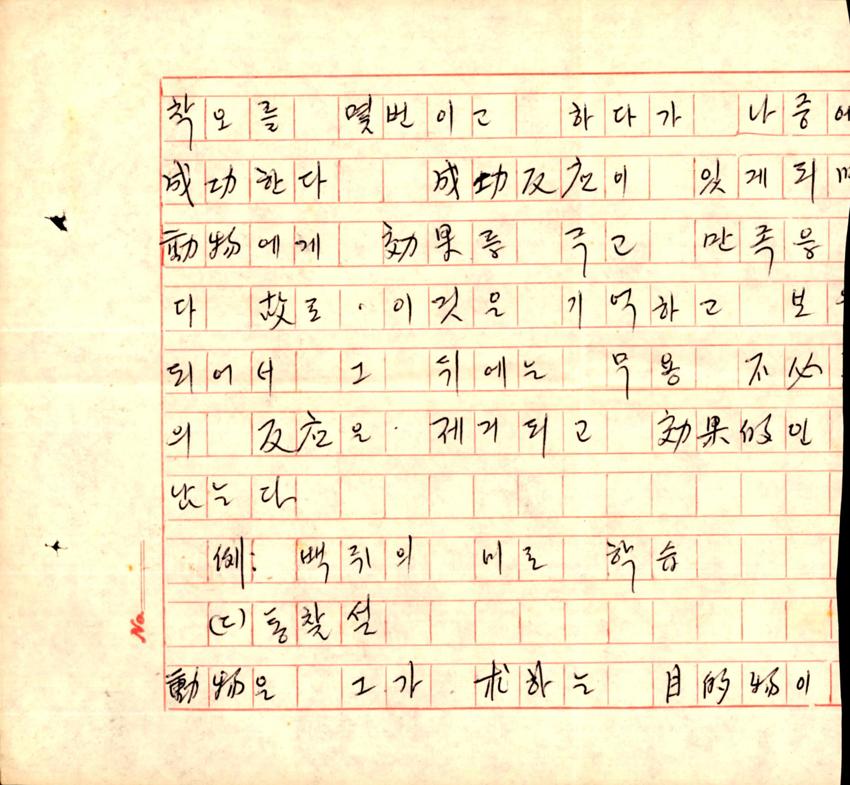 착오를 몇번이고 하다가 나중에
成功한다 成功反応이 있게되며
動物에게 効果를 주고 만족을
다 故로. 이것은 기억하고 보
되어서 그 뒤에는 무용 不必
의 反応은. 제거되고 効果的인
난는다
例: 백쥐의 미로 학습
(ㄷ) 통찰설
動物은 그가. 求하는 目的物이
No